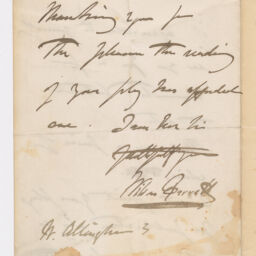 Thanking you for
the pleasure the reading
of your play has afforded
me. I am dear Sir
faithfully yours
Wilson Barrett
W. Allingham